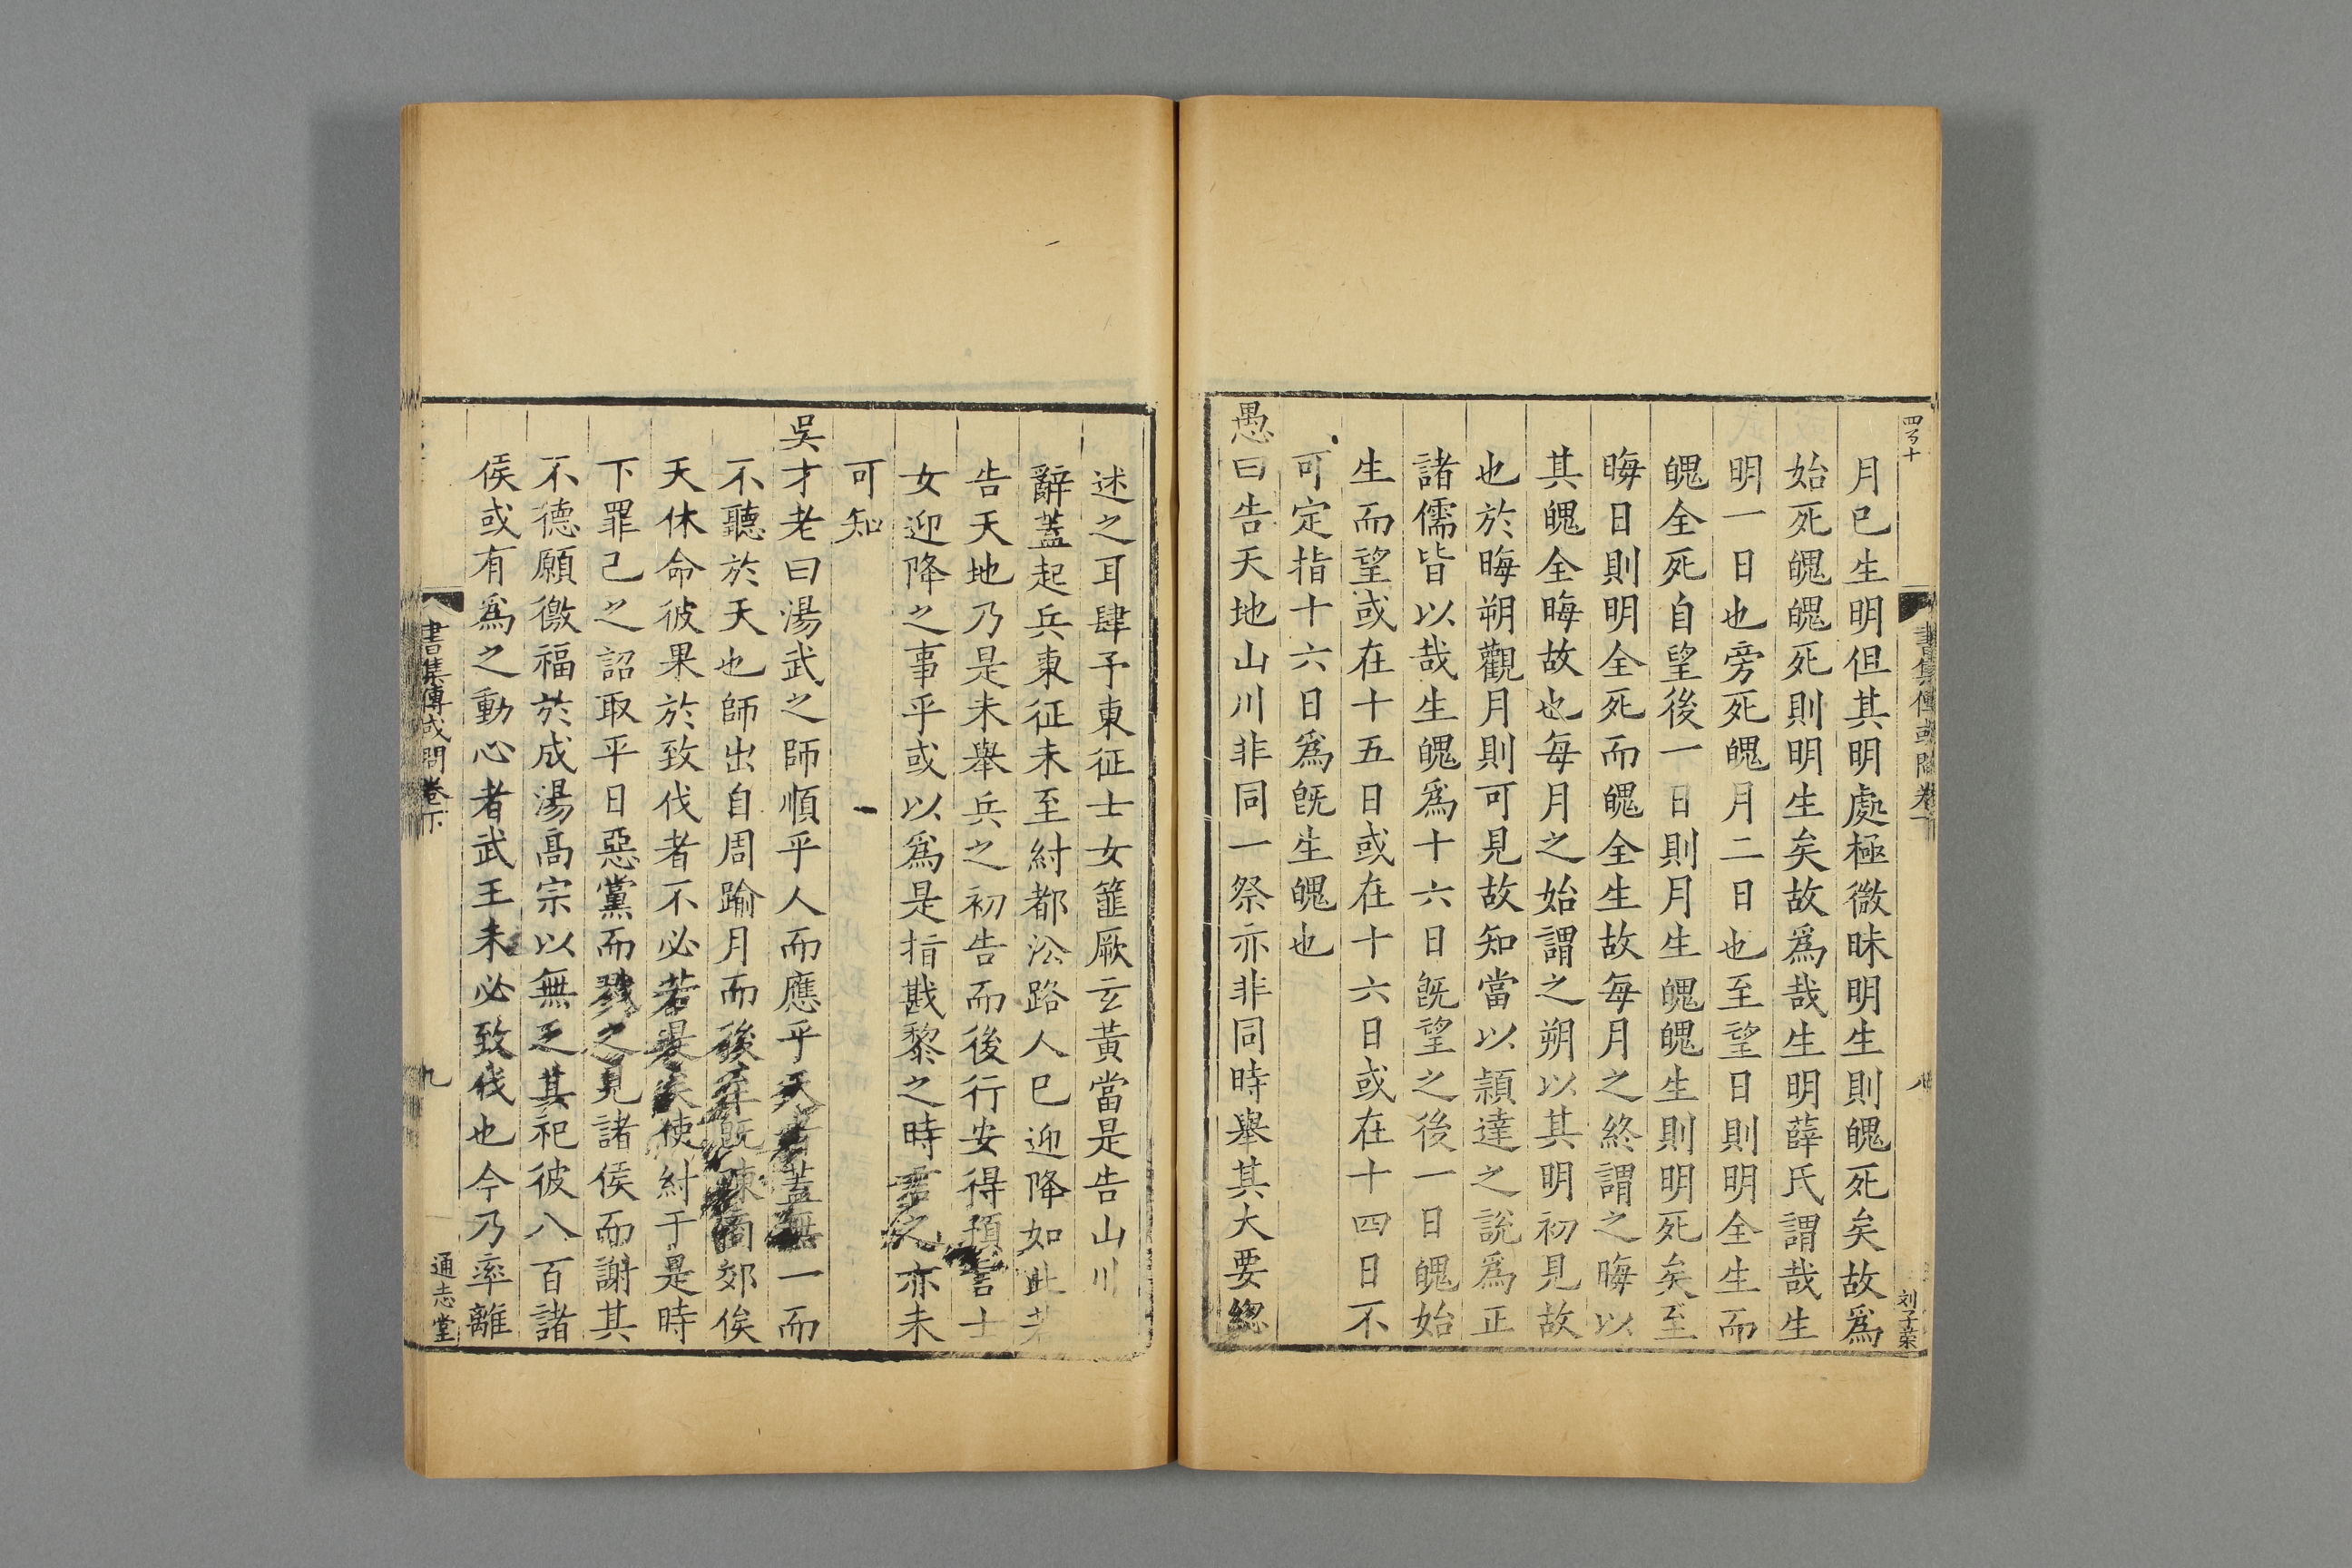 月已生明但其明處極微昧明生則魄死矣故爲
始死魄魄死則明生矣故爲哉生明薛氏謂哉生
明一日也旁死魄月二日也至望日則明全生而
魄全死自望後一日則月生魄魄生則明死矣至
晦日則明全死而魄全生故每月之終謂之晦以
其魄全晦故也每月之始謂之朔以其明初見故
也於晦朔觀月則可見故知當以穎達之說爲正
諸儒皆以哉生魄爲十六日旣望之後一日魄始
生而望或在十五日或在十六日或在十四日不
可定指十六日爲旣生魄也
愚曰告天地山川非同一祭亦非同時舉其大要總
書集傳或問卷下
八
刘子荣
述之耳肆予東征士女篚厥玄黃當是告山川
辭蓋起兵東征未至紂都㳂路人已迎降如此若
告天地乃是未舉兵之初告而後行安得預言士
女迎降之事乎或以爲是指戡黎之時言之亦未
可知
吳才老曰湯武之師順乎人而應乎天者蓋無一而
不聽於天也師出自周踰月而後年旣陳商郊俟
天休命彼果於致伐者不必若是矣使紂于是時
下罪己之詔取平日惡黨而戮之見諸侯而謝其
不德願徼福於成湯高宗以無乏其祀彼八百諸
侯或有爲之動心者武王未必致伐也今乃率離
書集傳或問卷下
九
通志堂